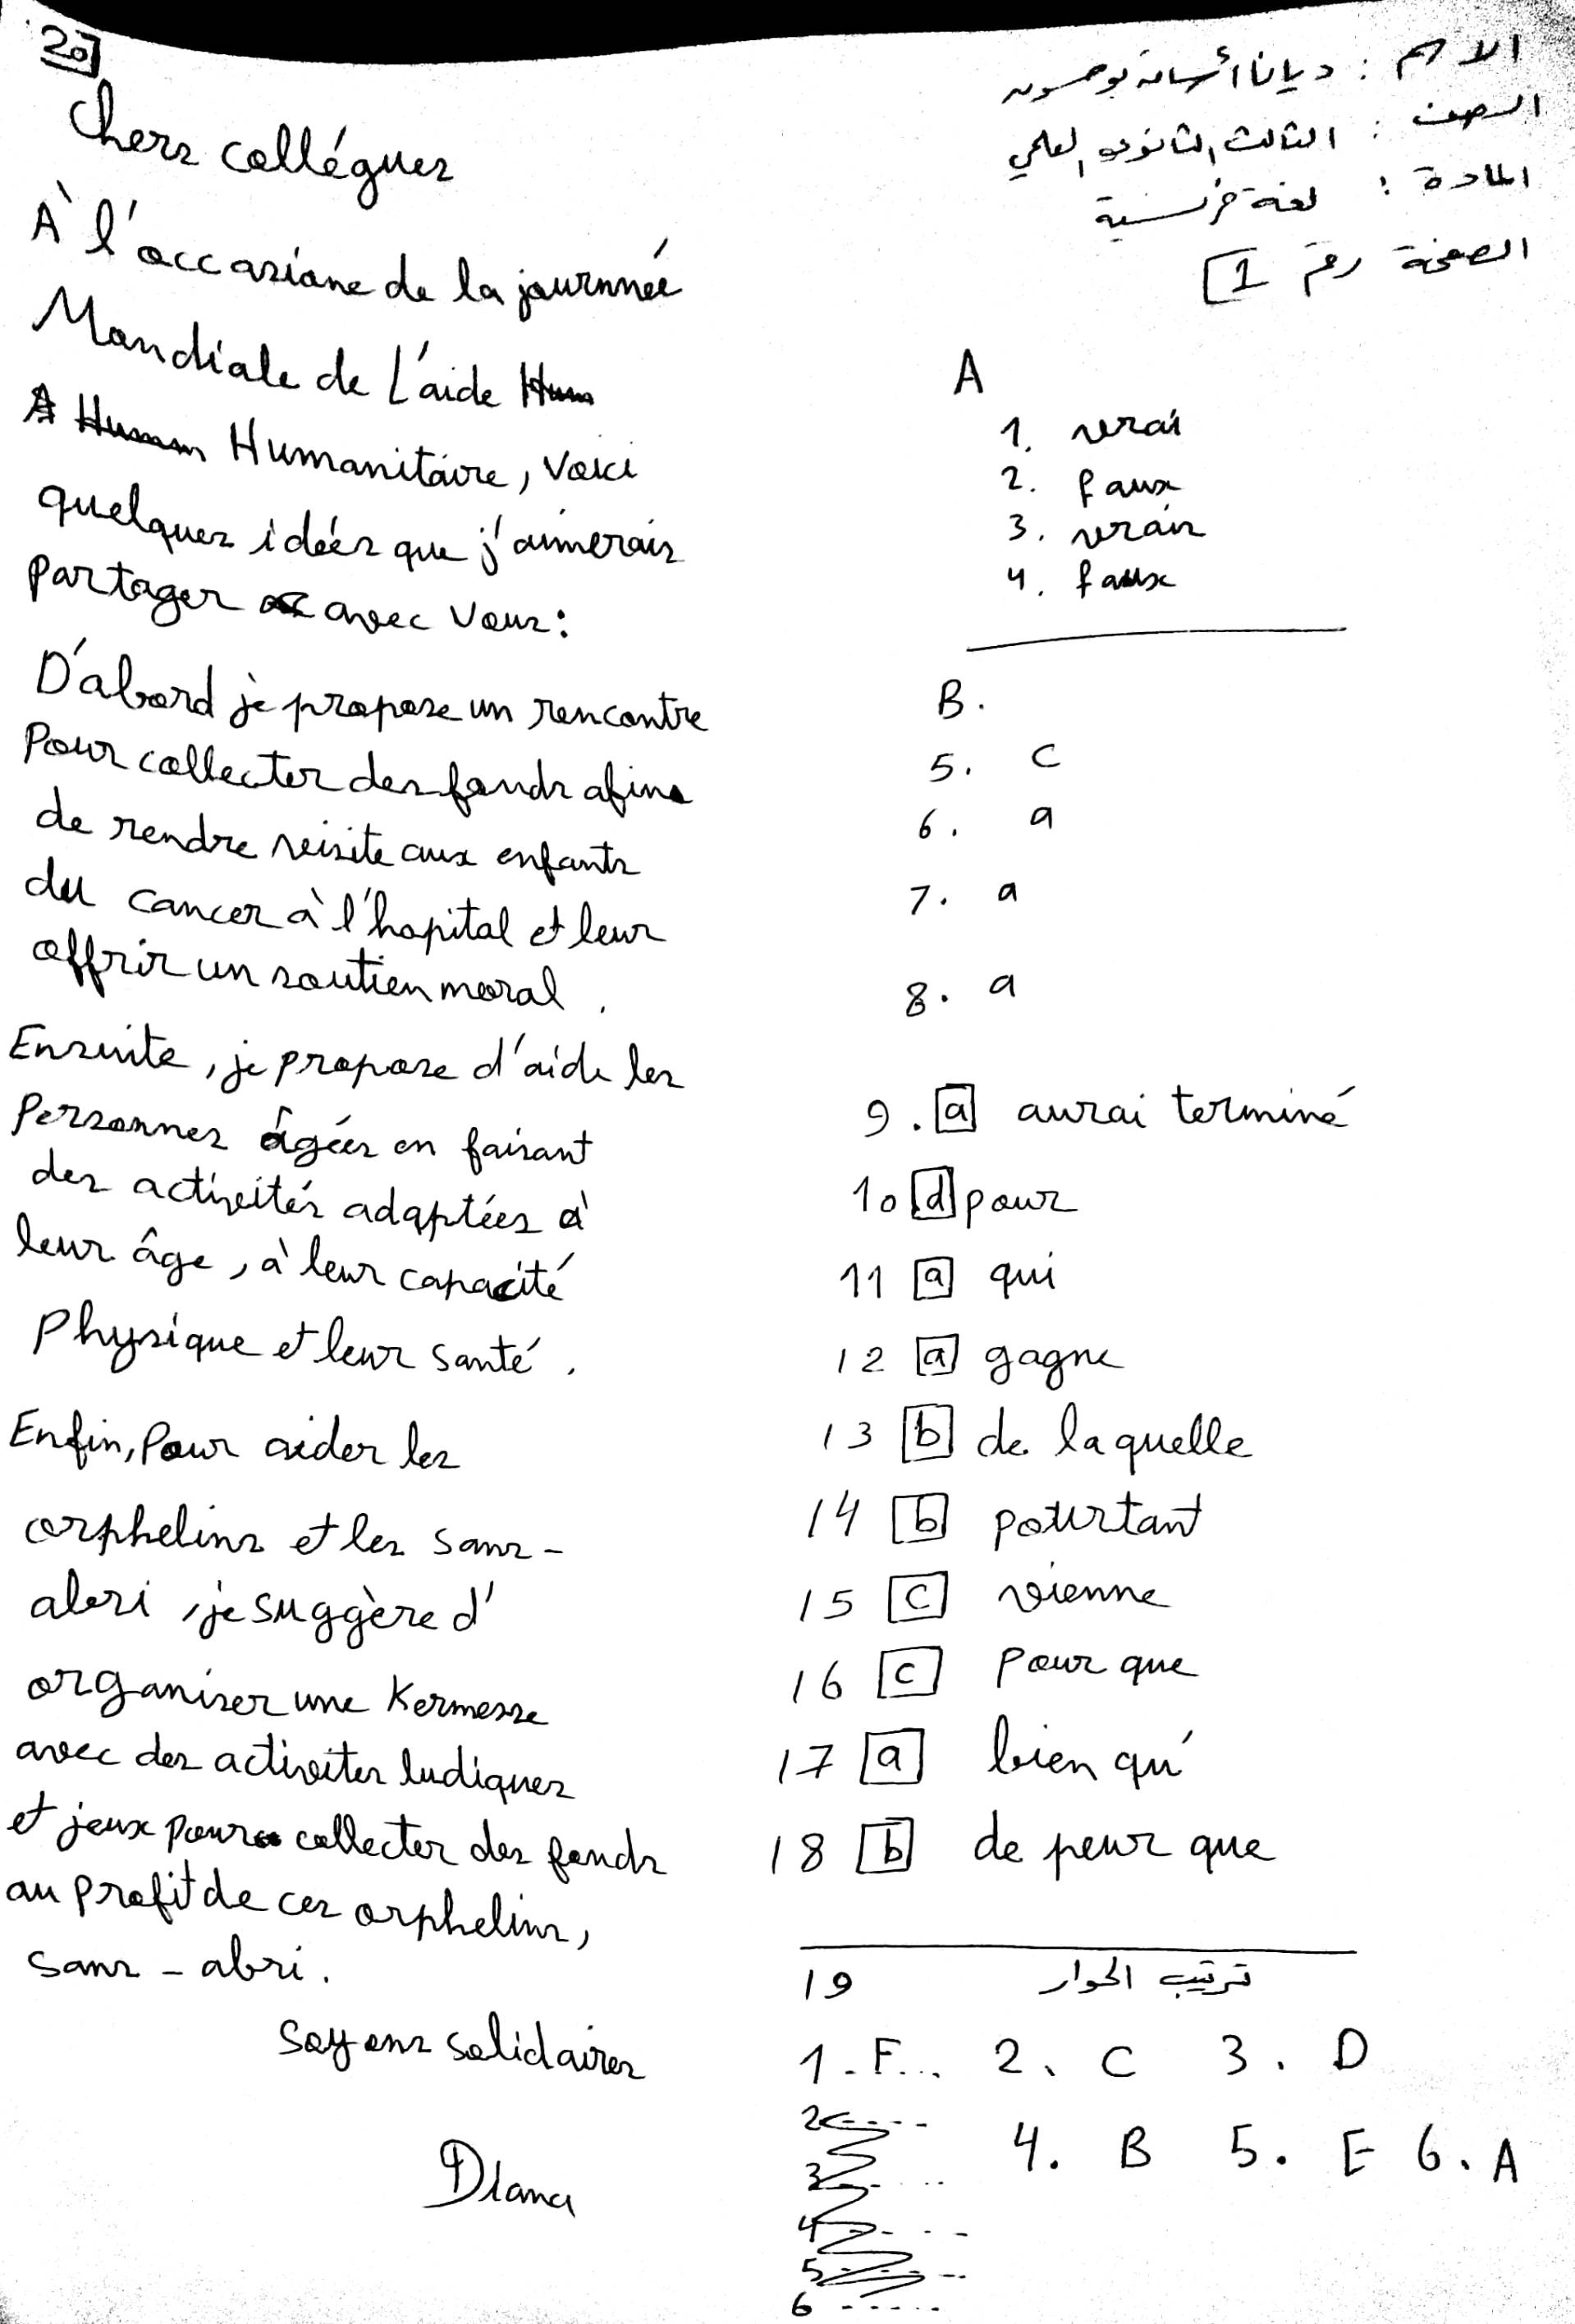 الاسم : ديانا أسامة بوحسون
الصف : الثالث الثانوي العلمي
المادة : لغة فرنسية
الصفحة رقم 1
A
1. vrai
2. faux
3. vrais
4. faux
B.
5. c
6. a
7. a
8. a
9. a aurai terminé
10 d pour
11 a qui
12 a gagne
13 b de laquelle
14 b pourtant
15 c vienne
16 c pour que
17 a bien qu'
18 b de peur que
19 ترتيب الحوار
1. F... 2. C 3. D
4. B 5. E 6. A
2
3
4
5
6
20
Chers collégues
À l'occasione de la journnée
Mondiale de L'aide
Humanitaire, Voici
quelques idées que j'aimerais
partager avec vous:
D'abord je propose un rencontre
Pour collecter des fonds afin
de rendre visite aux enfants
du cancer à l'hopital et leur
offrir un soutien moral.
Ensuite, je propose d'aide les
Personnes âgées en faisant
des activités adaptées à
leur âge, à leur capacité
Physique et leur santé.
Enfin, Pour aider les
orphelins et les sans-
abri, je suggère d'
organiser une Kermesse
avec des activites ludiques
et jeux pour collecter des fonds
au profit de ces orphelins,
sans-abri.
Soyons solidaires
Diana